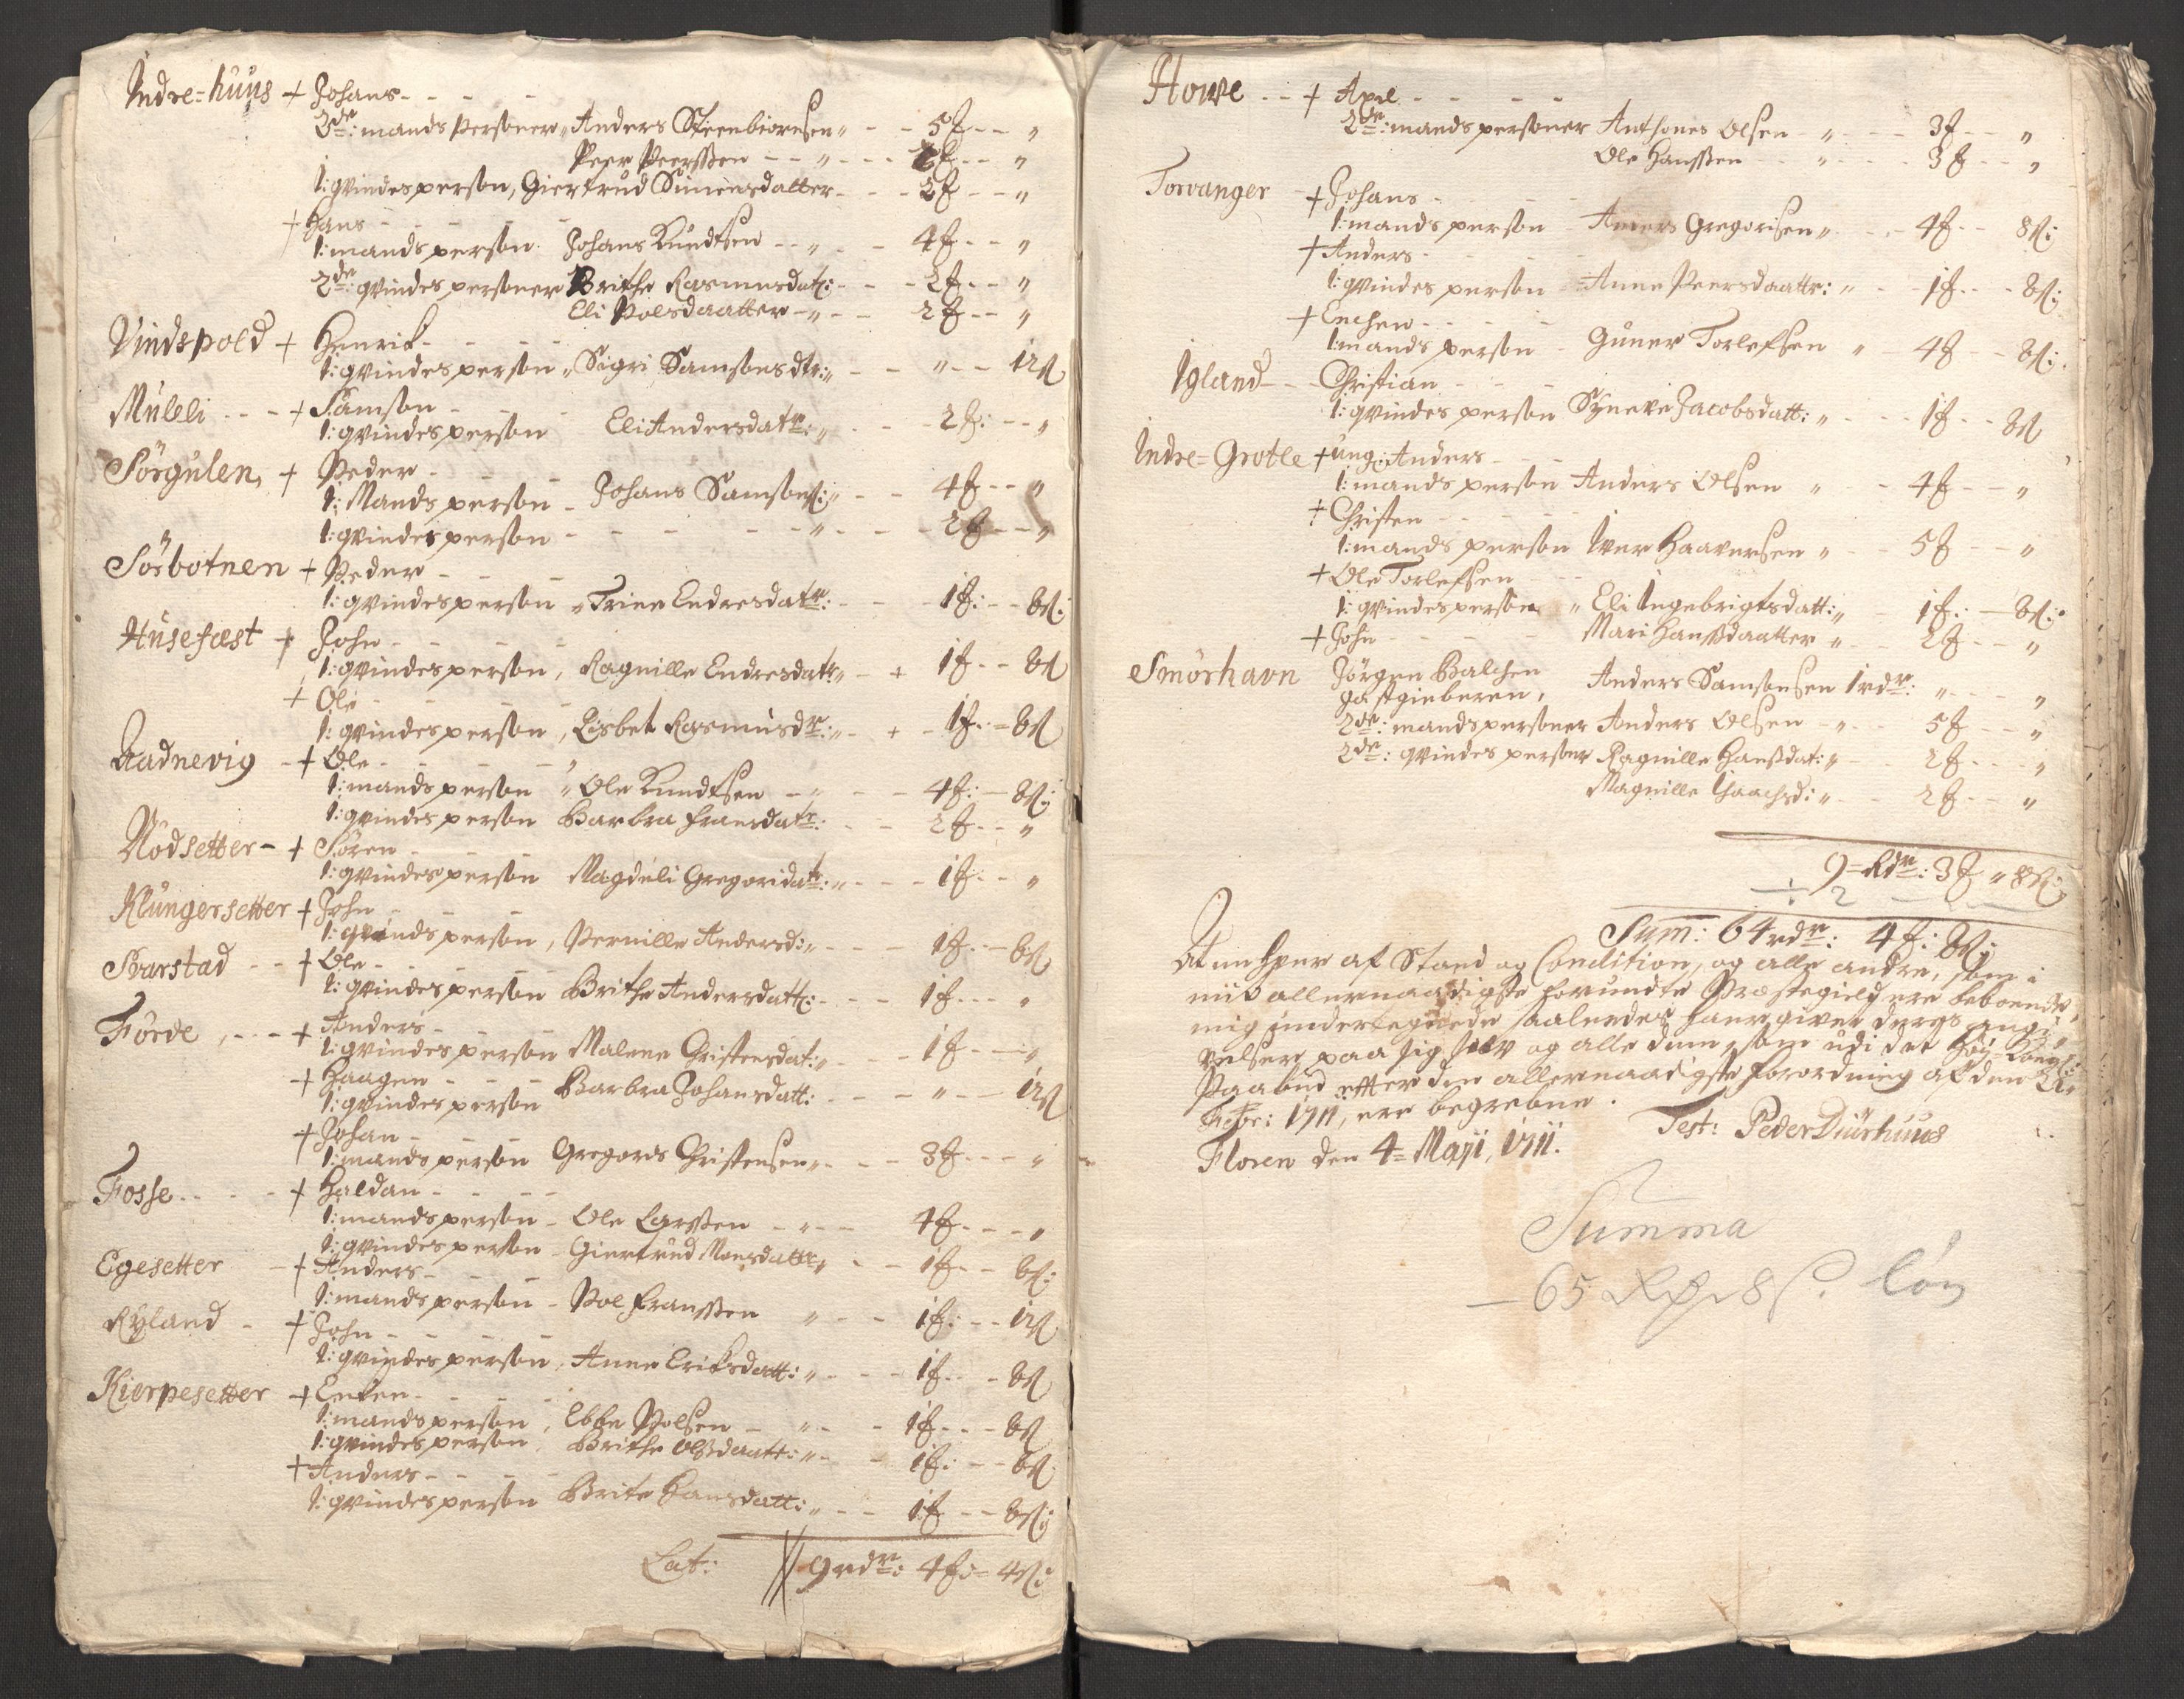 Indre=huus + Johans
2de: mands Personer Anders Steenbiørnsen 5 "
Peer Peerssen "
1: qvindes person, Giertrud Simensdatter 2 "
+ Hans
1: mands person Johans Knudtsen 4 "
2de: qvindes personer Brithe Rasmusdat: 2 "
Eli Polsdaatter 2 "
Vindspold + Henrik
1: qvindes person Sigri Samsonsdtr: " 12
Muleli + Samson
1: qvindes person Eli Andersdatr: 2 "
Sørgulen, + Peder
1: Mands person Johans Samsons: 4 "
1: qvindes person 2 "
Sørbotnen + Peder
1: qvindes person Trine Endresdatr: 1 8
Husefæst + John
1: qvindes person, Ragnille Endresdatr + 1 8
+ Ole
1: qvindes person, Lisbet Rasmusdr: + 1 8
Aadnevig + Ole
1: mands person Ole Knudtsen 4 8
1: qvindes person Barbra Fransdatr: 2 "
Nødsetter + Søren
1: qvindes person Magdeli Gregoridatr: 1 "
Klungersetter + John
1: qvinds person, Pernille Andersd: 1 8
Svarstad + Ole
1: qvindes person Brithe Andersdatt: 1 "
Førde + Anders
1: qvindes person Malene Christensdat: 1 "
+ Haagen
1: qvindes person Barbra Johansdatt: " 12
+ Johan
1: mands person Gregors Christensen 3 "
Fosse + Haldan
1: mands person Ole Larssen 4 "
1: qvindes person Giertrud Monsdattr 1 8
Egesetter + Anders
1: mands person Pol Franssen 1 12
Ryland + John
1: qvindes person, Anne Eriksdatt: 1 8
Kierpesetter + Enken
1: mands person, Ebbe Polsen 1 8
1: qvindes person, Brithe Olsdaatt: 1 8
+ Anders
1: qvindes person Brite Hansdatt: 1 8
Lat: 9 rdr: 4 4
Howe + Axel
2de: mands personer Anthones Olsen 3 "
Ole Hanssen 3 "
Torvanger + Johans
1: mands person Anders Gregorisen 4 8
+ Anders
1: qvindes person Anne Peersdaattr: 1 8
+ Enchen
1: mands person Guner Torlefsen 4 8
Igland Christian
1: qvindes person Syneve Jacobsdatt: 1 8
Indre=Grotle + ung: Anders
1: mands person Anders Olsen 4 "
+ Christen
1: mands person Iver Haaversen 5 "
+ Ole Torlefsen
1: qvindes person Eli Ingebrigtsdatt: 1 8
+ John Mari Hansdaatter 2 "
Smørhavn Jørgen Balchen
gastgieberen, Anders Samsonsen 1 rdr: "
2de: mands personer Anders Olsen 5 "
2de: qvindes personer Ragnille Hansdat: 2 "
Magnille Isaachsd: 2 "
9=Rdr: 3 " 8
÷ 2
Sum: 64 rdr: 4 8
At enhver af Stand og Condition, og alle andre, som i
mit allernaadigste forundte Præstegield ere beboende,
mig underlegnede saaledes haver givet deres angi-
velser paa sig selv og alle dem, som udi det Høy-Kongl:
Paabud efter den allernaadigste forordning af den
Febr: 1711, ere begrebne.
Floren den 4= Maji, 1711. Test: Peder Diurhuus
Summa
65 8